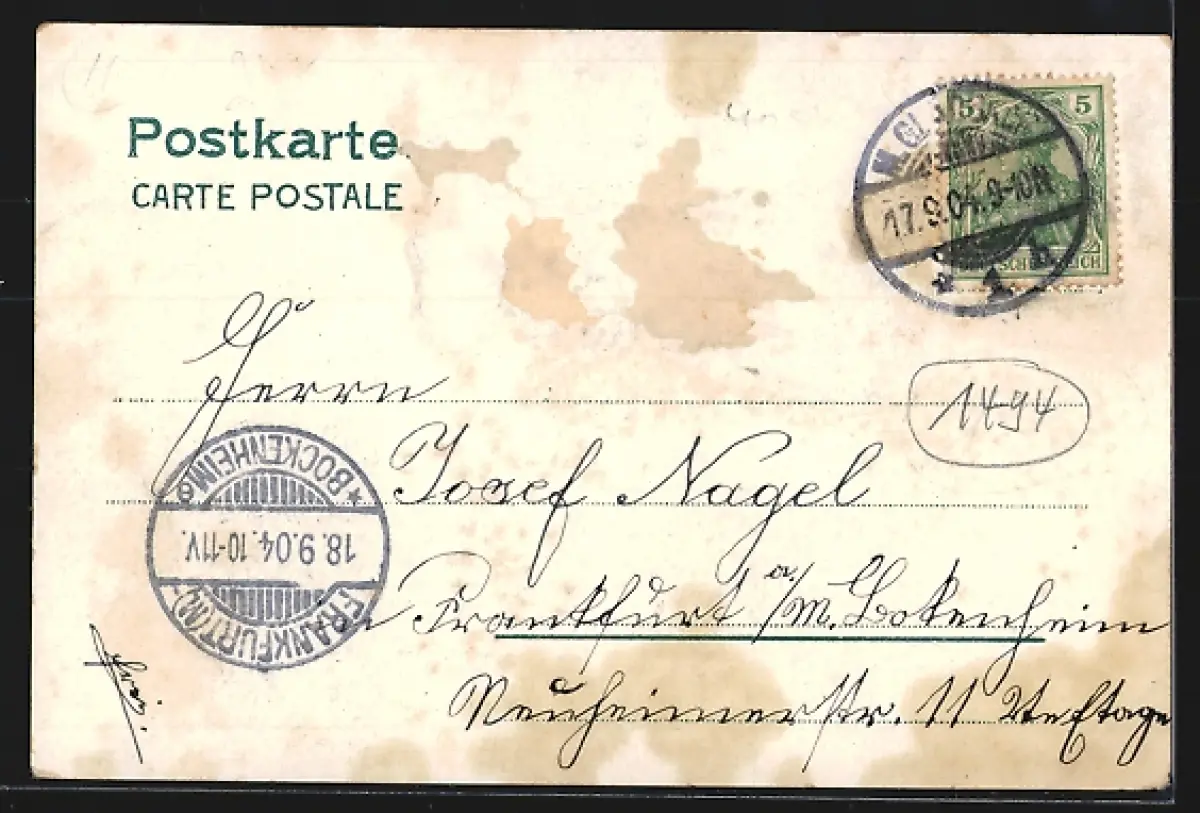 Postkarte
CARTE POSTALE
5 5
M. GLADBACH
17.9.04. 9-10N
1 b
Herrn
1494
Josef Nagel
*BOCKENHEIM*
18.9.04. 10-11V.
FRANKFURT (MAIN)
in Frankfurt a/M. Bokenheim
Neuheimerstr. 11 Etage